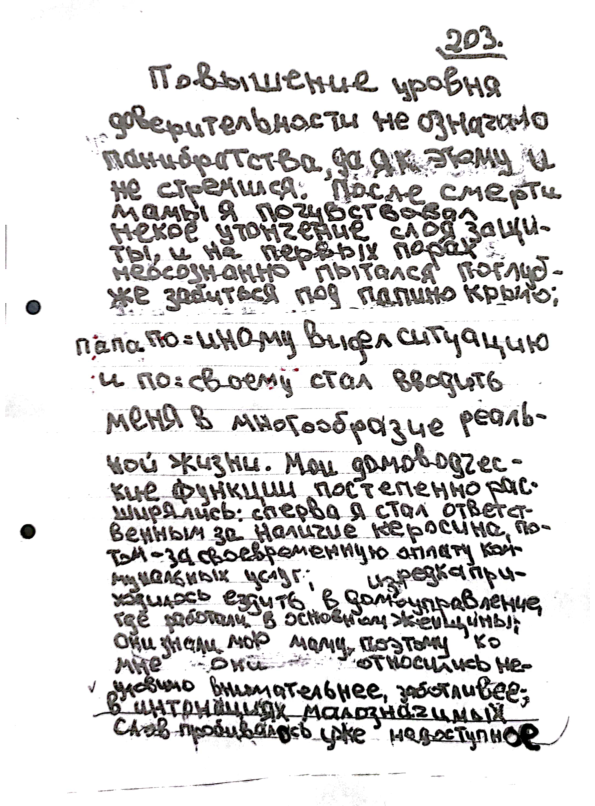 203.
Повышение уровня
доверительности не означало
панибратства, да я к этому и
не стремился. После смерти
мамы я почувствовал
некое утончение слоя защи-
ты, и на первых порах
неосознанно пытался поглуб-
же забиться под папино крыло;
папа по=иному видел ситуацию
и по=своему стал вводить
меня в многообразие реаль-
ной жизни. Мои домоводчес-
кие функции постепенно рас-
ширялись: сперва я стал ответст-
венным за наличие керосина, по-
том-за своевременную оплату ком-
мунальных услуг; изредка при-
ходилось ездить в домоуправление,
где работали в основном женщины;
они знали мою маму, поэтому ко
мне они относились не-
уловимо внимательнее, заботливее;
в интонациях малозначимых
слов пробивалось уже недоступное